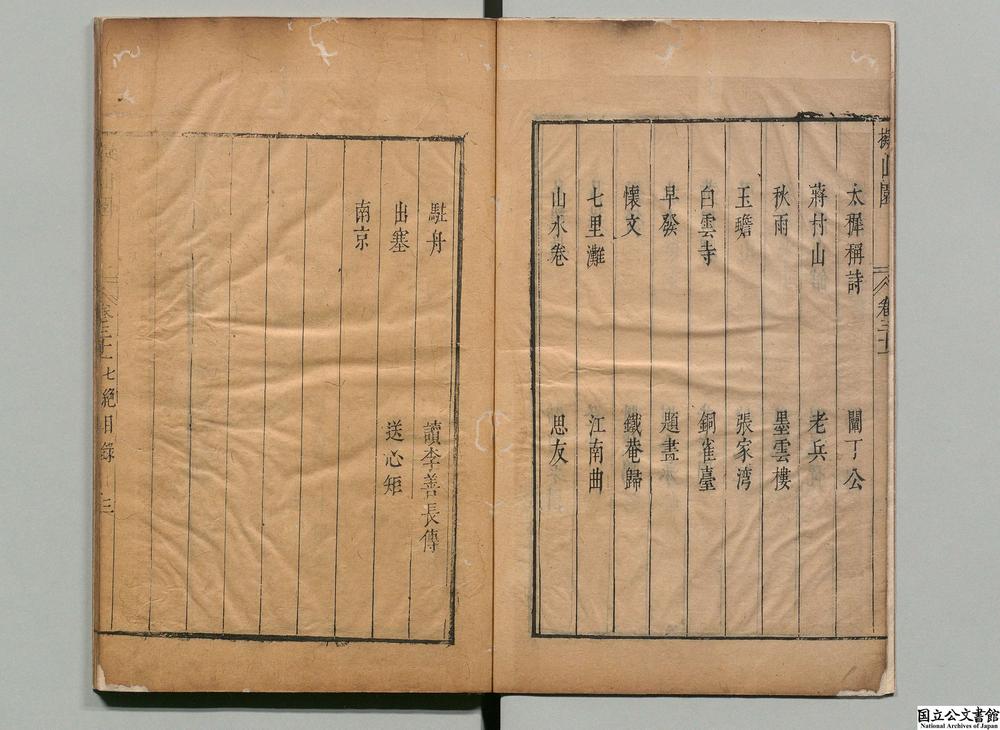 擬山園 卷三十二
太穉稱詩 闈丁公
蔣村山 老兵
秋雨 墨雲樓
玉蟾 張家湾
白雲寺 銅雀臺
早發 題畫
懷文 鐵菴歸
七里灘 江南曲
山水卷 思友
駐舟 讀李善長傳
出塞 送心矩
南京
卷三十二 七絕目錄 三
国立公文書館
National Archives of Japan